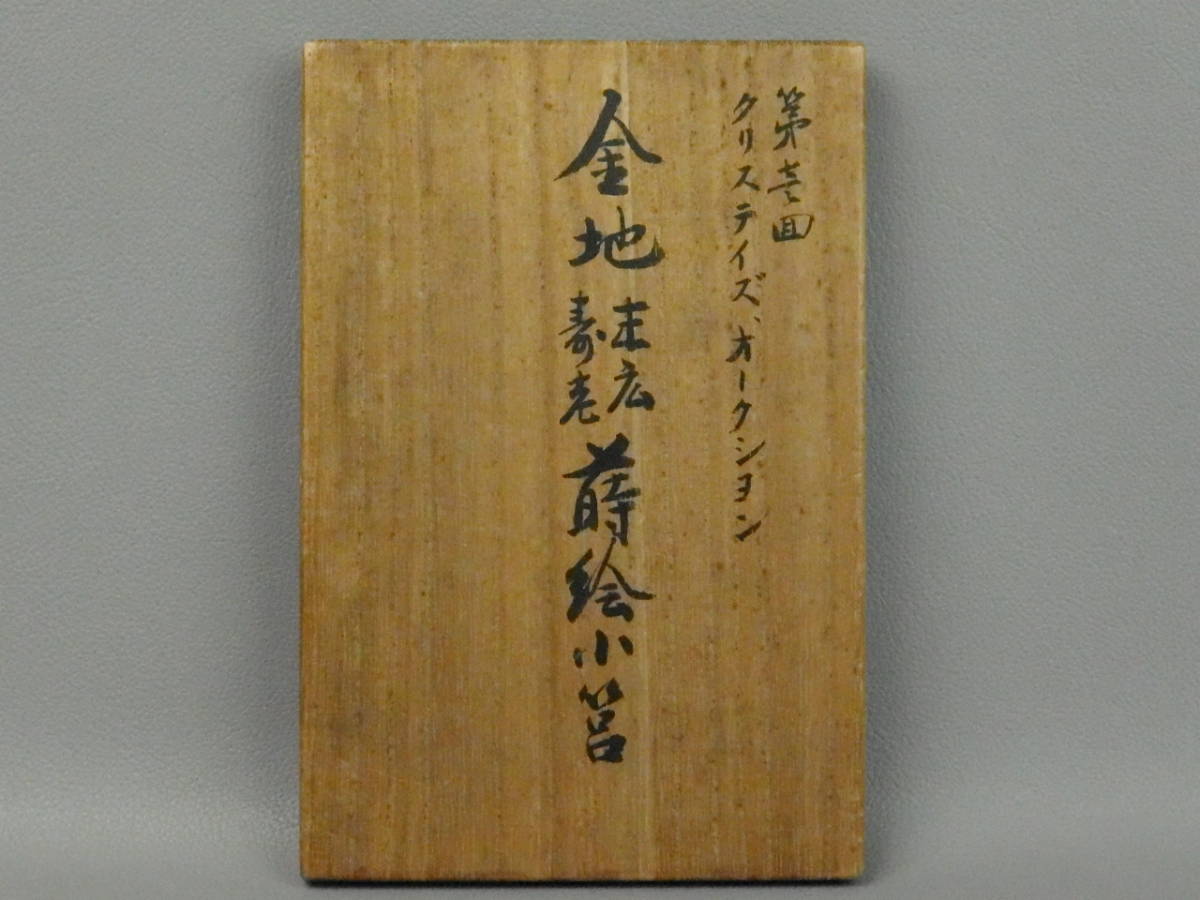 第壱回
クリステイズ、オークション
金地
末広
寿老
蒔絵小筥